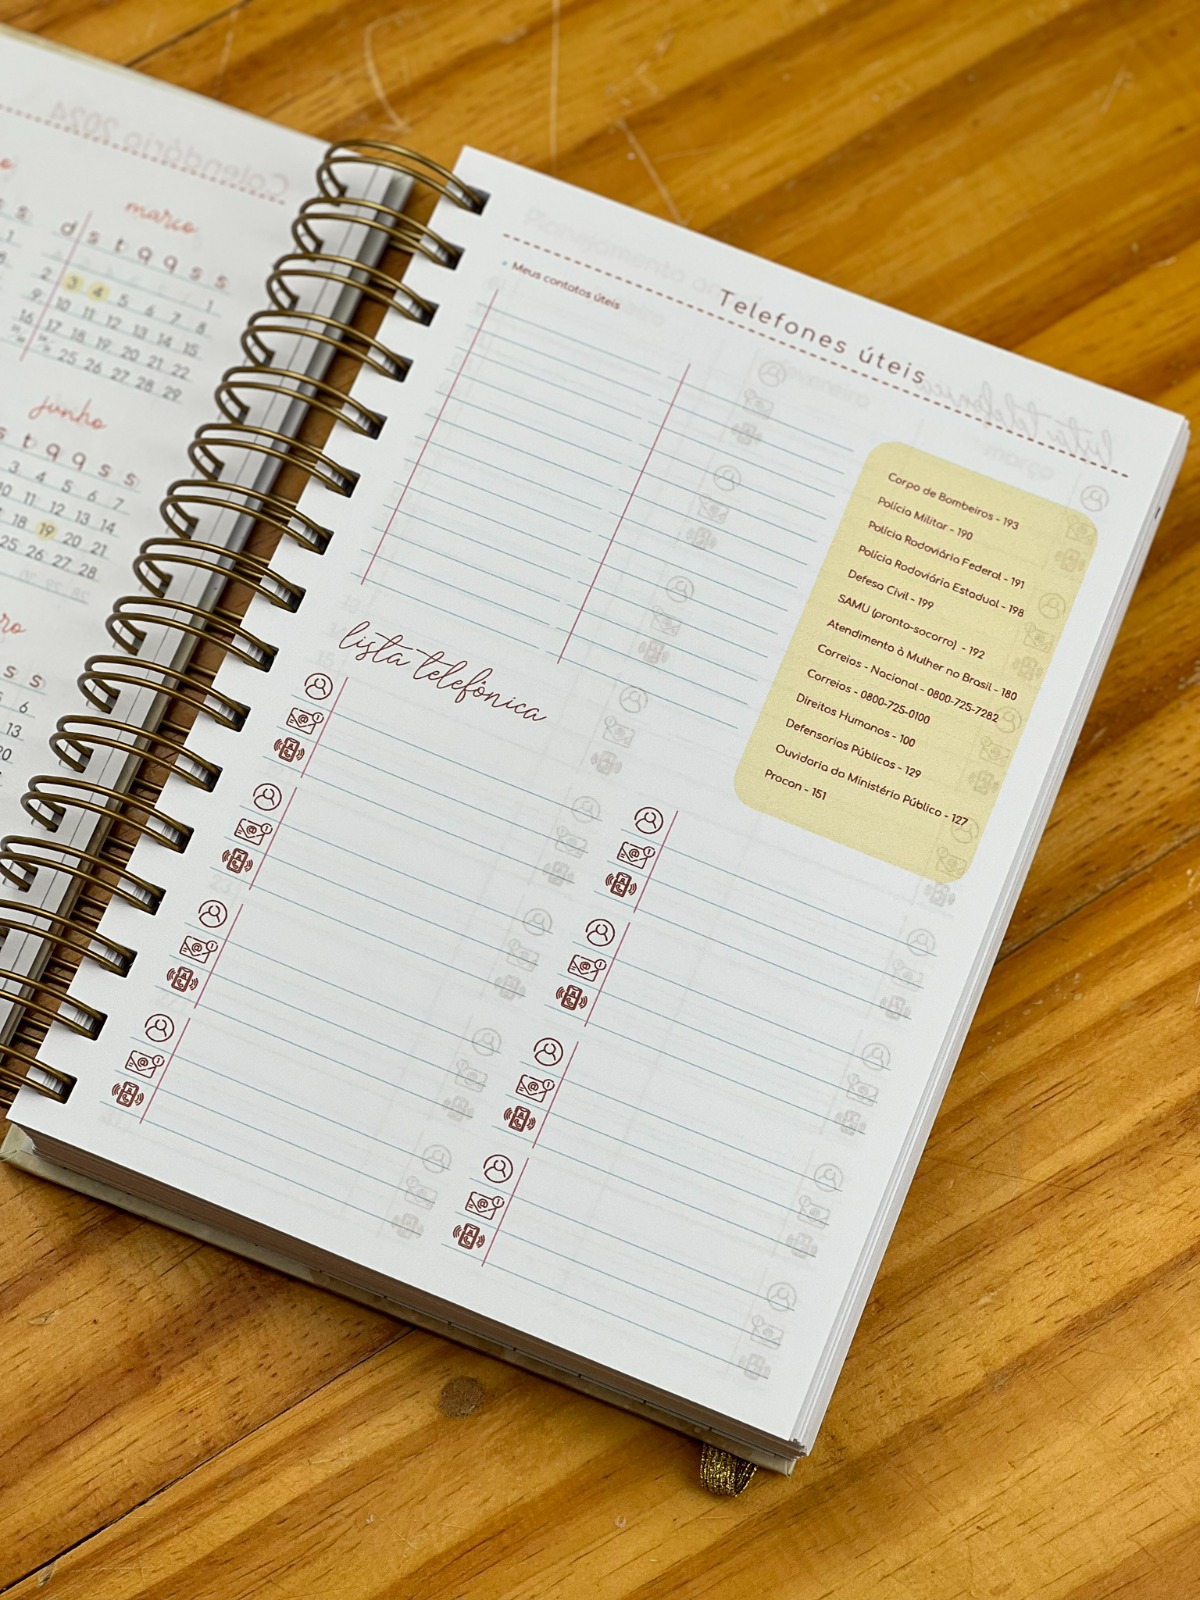 Calendário 2024
março
d s t q q s s
1
2 3 4 5 6 7 8
9 10 11 12 13 14 15
16 17 18 19 20 21 22
25 26 27 28 29
junho
s t q q s s
3 4 5 6 7
10 11 12 13 14
18 19 20 21
25 26 27 28
ro
s s
6
13
20
Telefones úteis
Meus contatos úteis
Corpo de Bombeiros - 193
Polícia Militar - 190
Polícia Rodoviária Federal - 191
Polícia Rodoviária Estadual - 198
Defesa Civil - 199
SAMU (pronto-socorro) - 192
Atendimento à Mulher no Brasil - 180
Correios - Nacional - 0800-725-7282
Correios - 0800-725-0100
Direitos Humanos - 100
Defensorias Públicas - 129
Ouvidoria do Ministério Público - 127
Procon - 151
lista telefônica